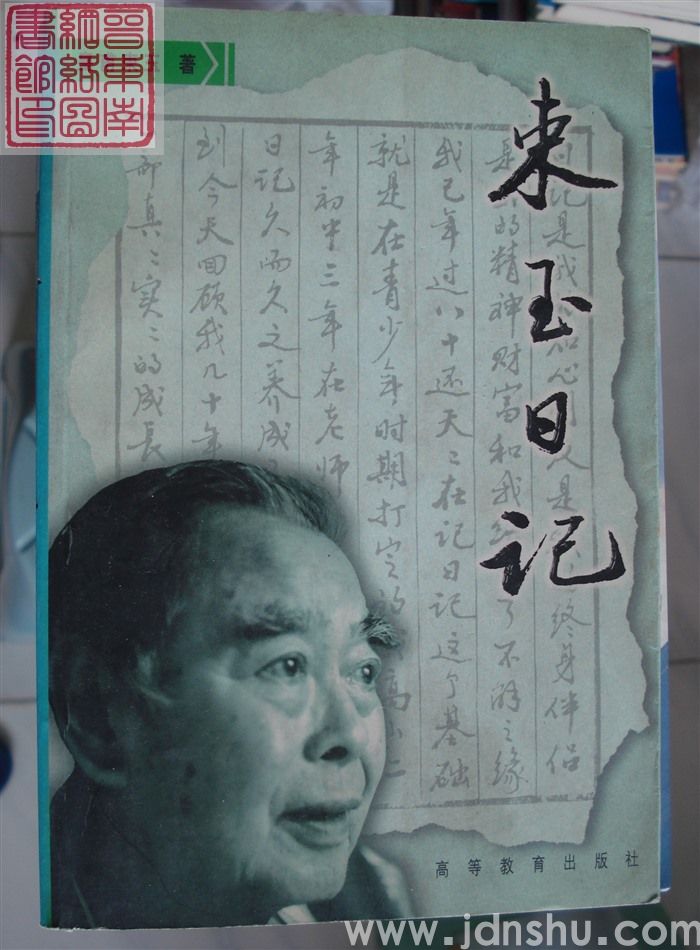 晋東南
網絡圖
書館印
五 著
東玉日记
日记是我 知心 人是 终身伴侣
是 的精神财富和我 了不解之缘
我已年过八十还天〻在记日记这个基础
就是在青少年时期打定的 高小二
年初中三年在老师
日记久而久之养成
到今天回顾我几十年
部真〻实〻的成長
高等教育出版社
www.jdnshu.com